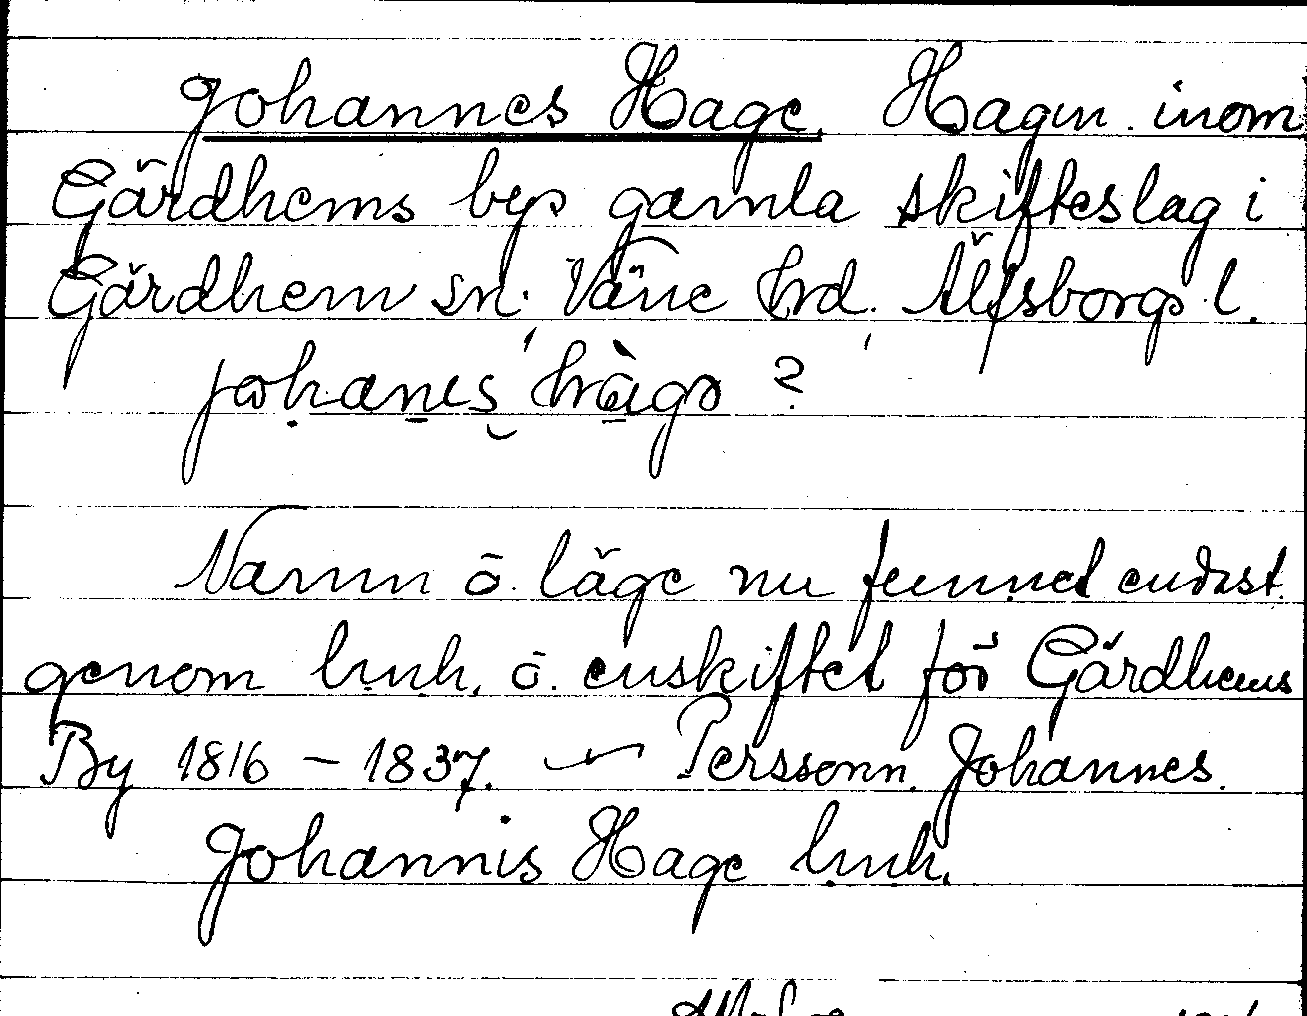 Johannes Hage. Hagen inom
Gärdhems bys gamla skifteslag i
Gärdhem sn, Väne hrd, Älfsborgs l.
johanes hàgə ?
Namn o. läge nu funnet endast
genom lmh. o. enskiftet för Gärdhems
By 1816 – 1837. Perssonn. Johannes.
Johannis Hage lmh.